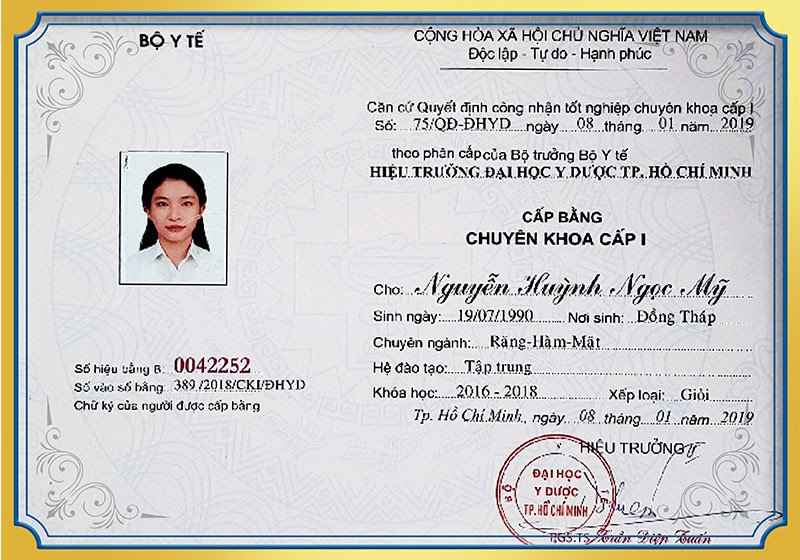 BỘ Y TẾ
CỘNG HÒA XÃ HỘI CHỦ NGHĨA VIỆT NAM
Độc lập - Tự do - Hạnh phúc
Căn cứ Quyết định công nhận tốt nghiệp chuyên khoa cấp I
Số: 75/QĐ-ĐHYD ngày 08 tháng 01 năm 2019
theo phân cấp của Bộ trưởng Bộ Y tế
HIỆU TRƯỞNG ĐẠI HỌC Y DƯỢC TP. HỒ CHÍ MINH
CẤP BẰNG
CHUYÊN KHOA CẤP I
Cho: Nguyễn Huỳnh Ngọc Mỹ
Sinh ngày: 19/07/1990 Nơi sinh: Đồng Tháp
Chuyên ngành: Răng-Hàm-Mặt
Hệ đào tạo: Tập trung
Khóa học: 2016 - 2018 Xếp loại: Giỏi
Tp. Hồ Chí Minh, ngày 08 tháng 01 năm 2019
HIỆU TRƯỞNG
Số hiệu bằng B: 0042252
Số vào sổ bằng: 389/2018/CKI/ĐHYD
Chữ ký của người được cấp bằng
BỘ Y TẾ
ĐẠI HỌC
Y DƯỢC
TP. HỒ CHÍ MINH
PGS.TS Trần Diệp Tuấn